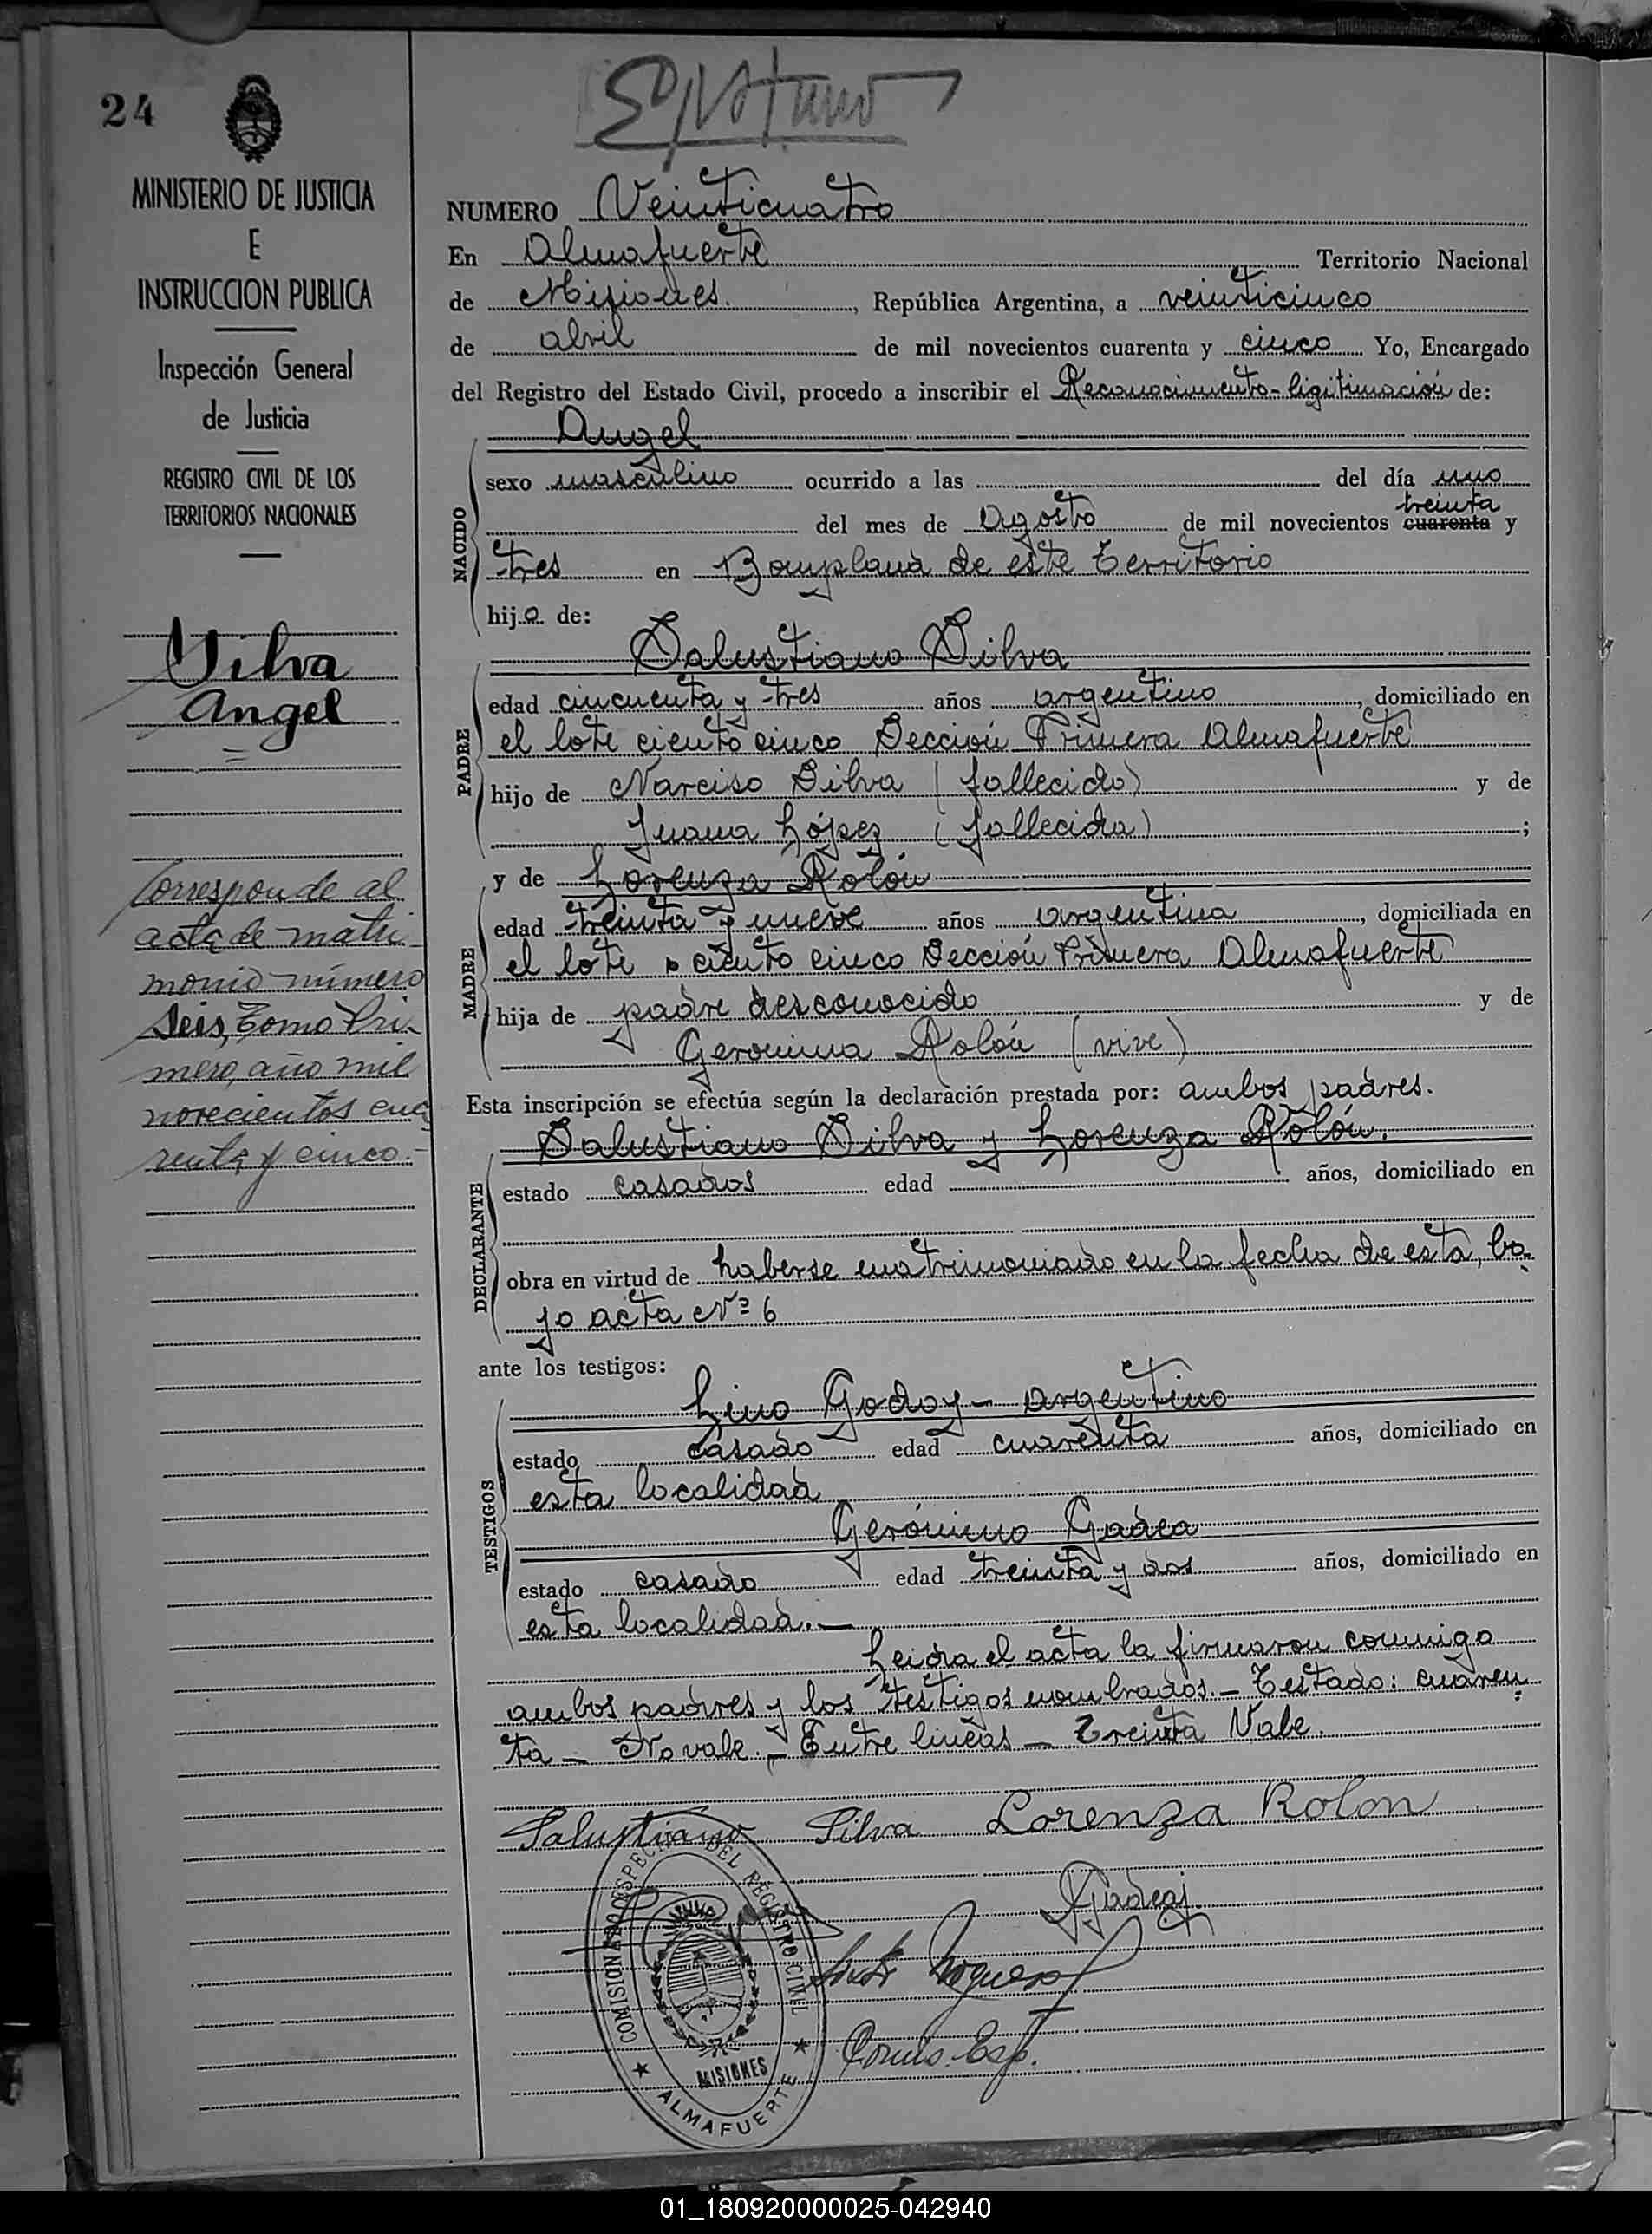 24
MINISTERIO DE JUSTICIA
E
INSTRUCCION PUBLICA
Inspección General
de Justicia
REGISTRO CIVIL DE LOS
TERRITORIOS NACIONALES
Silva
Angel
Corresponde al
acta de matri
monio número
Seis, Tomo Pri
mero, año mil
novecientos cua
renta y cinco.-
NUMERO Veinticuatro
En Almafuerte Territorio Nacional
de Misiones. , República Argentina, a veinticinco
de abril de mil novecientos cuarenta y cinco Yo, Encargado
del Registro del Estado Civil, procedo a inscribir el Reconocimiento-ligitimación de:
NACIDO
Angel
sexo masculino ocurrido a las del día uno
treinta
del mes de Agosto de mil novecientos cuarenta y
tres en Bonpland de este Territorio
hijo de:
PADRE
Salustiano Silva
edad cincuenta y tres años argentino , domiciliado en
el lote ciento cinco Sección Primera Almafuerte
hijo de Narciso Silva (fallecido) y de
Juana López (fallecida) ;
y de Lorenza Rolón
MADRE
edad treinta y nueve años argentina , domiciliada en
el lote ciento cinco Sección Primera Almafuerte
hija de padre desconocido y de
Geronima Rolón (vive)
Esta inscripción se efectúa según la declaración prestada por: ambos padres.
DECLARANTE
Salustiano Silva y Lorenza Rolón.
estado casados edad años, domiciliado en
obra en virtud de haberse matrimoniado en la fecha de esta, ba-
jo acta Nº 6
ante los testigos:
TESTIGOS
Lino Godoy - argentino
estado casado edad cuarenta años, domiciliado en
esta localidad
Gerónimo Gadea
estado casado edad treinta y dos años, domiciliado en
esta localidad.—
Leida el acta la firmaron conmigo
ambos padres y los testigos nombrados.- Testado: cuaren-
ta - No vale.- Entre lineas - Treinta Vale.
Salustiano Silva Lorenza Rolon
GGadea
COMISIONADO ESPECIAL DEL REGISTRO CIVIL
MISIONES
ALMAFUERTE
Comis. Esp.
01_180920000025-042940